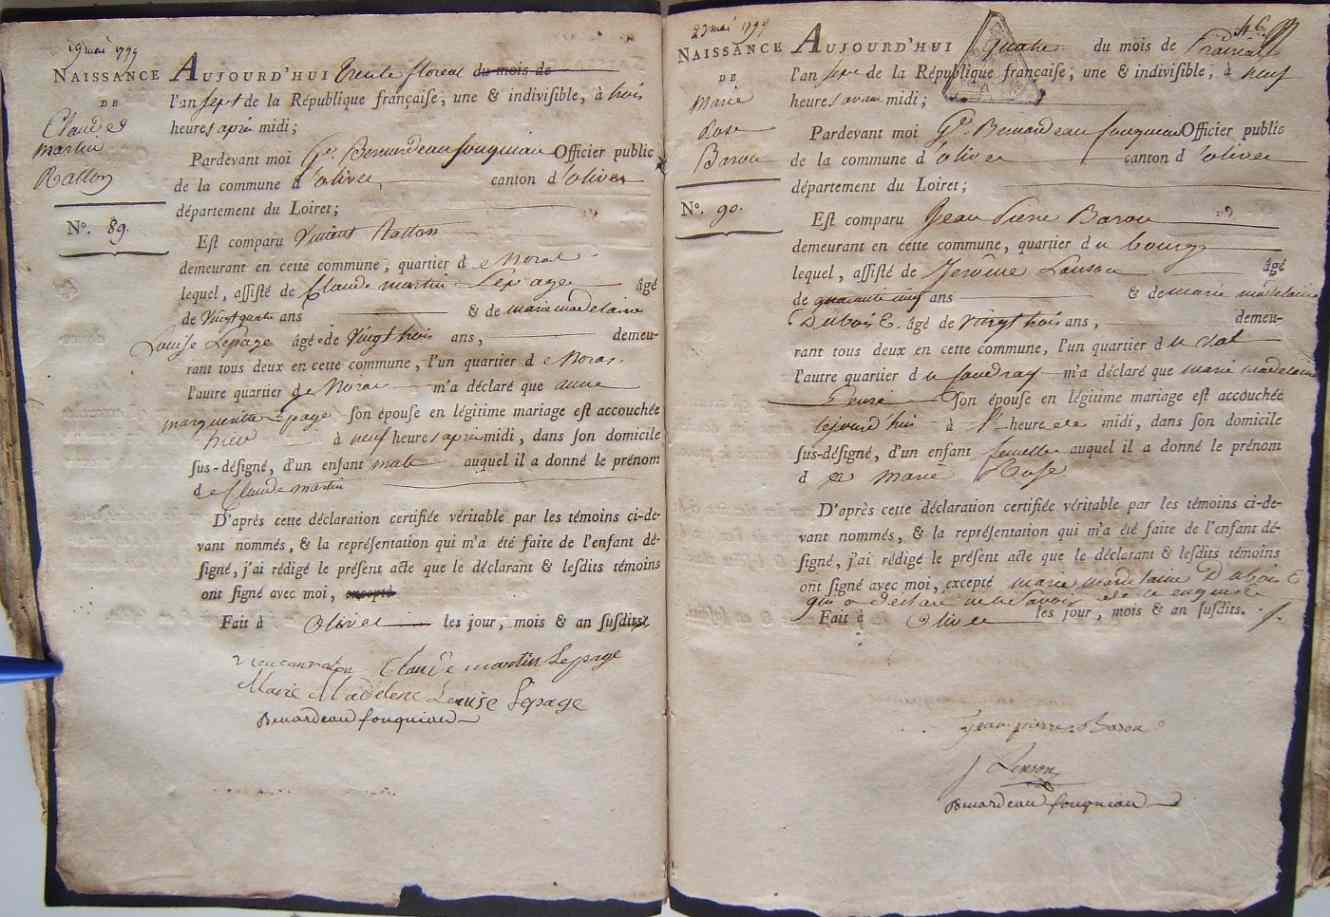 19 mai 1799
NAISSANCE
DE
Claude
martin
Ratton
N°. 89.
AUJOURD'HUI trente floreal du mois de
l'an sept de la République françaiſe, une & indiviſible, à trois
heures après midi;
Pardevant moi Bernardeau fouqueau Officier public
de la commune d'olivet, canton d'olivet
département du Loiret;
Eſt comparu Vincent Ratton
demeurant en cette commune, quartier de Noras
lequel, aſſiſté de Claude martin Lepage âgé
de Vingt quatre ans & de marie madelaine
Louise Lepage âgé de Vingt trois ans, demeu-
rant tous deux en cette commune, l'un quartier de Noras.
l'autre quartier de Noras m'a déclaré que anne
marguerite Lepage ſon épouſe en légitime mariage eſt accouchée
hier à neuf heures après midi, dans ſon domicile
ſus-déſigné, d'un enfant male auquel il a donné le prénom
de Claude martin
D'après cette déclaration certifiée véritable par les témoins ci-de-
vant nommés, & la repréſentation qui m'a été faite de l'enfant dé-
ſigné, j'ai rédigé le préſent acte que le déclarant & leſdits témoins
ont ſigné avec moi, excepté
Fait à Olivet les jour, mois & an ſuſdits
Claude martin Lepage
Marie Madelene Louise Lepage
Bernardeau fouqueau
23 mai 1799
46
NAISSANCE
DE
Marie
Rose
Baron
N°. 90.
AUJOURD'HUI quatre du mois de Prairial
l'an sept de la République françaiſe, une & indiviſible, à neuf
heures avant midi;
Pardevant moi Bernardeau fouqueau Officier public
de la commune d'olivet canton d'olivet
département du Loiret;
Eſt comparu Jean Pierre Baron
demeurant en cette commune, quartier du bourg
lequel, aſſiſté de Jerôme Lanson âgé
de quarante cinq ans & de marie madelaine
Dubois âgé de vingt trois ans, demeu-
rant tous deux en cette commune, l'un quartier du
l'autre quartier du m'a déclaré que marie madelaine
ſon épouſe en légitime mariage eſt accouchée
lejourd'hui à heure midi, dans ſon domicile
ſus-déſigné, d'un enfant femelle auquel il a donné le prénom
de Marie Rose
D'après cette déclaration certifiée véritable par les témoins ci-de-
vant nommés, & la repréſentation qui m'a été faite de l'enfant dé-
ſigné, j'ai rédigé le préſent acte que le déclarant & leſdits témoins
ont ſigné avec moi, excepté marie madelaine Dubois
qui a declaré ne le savoir de ce enquise
Fait à Olivet les jour, mois & an ſuſdits.
Jean pierre Baron
J Lenson
Bernardeau fouqueau